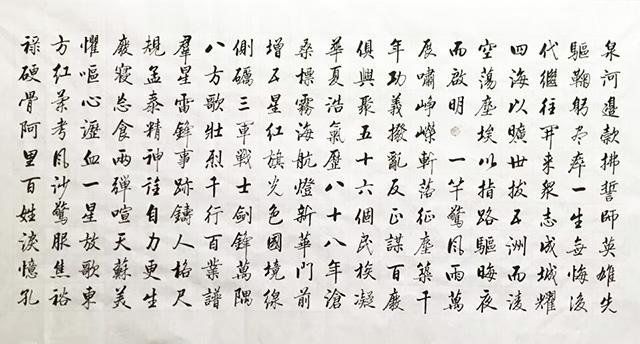 泉河邊款拂誓師英雄先
驅鞠躬尽瘁一生無悔後
代繼往开来衆志成城耀
四海以曠世拔五洲而淩
空蕩塵埃以指路驅晦夜
而啟明 一竿驚風雨萬
辰嘯崢嶸斬蕩征塵築千
年功義撥亂反正謀百廢
俱興聚五十六個民族凝
華夏浩氣歷八十八年滄
桑標霧海航燈新華門前
增五星紅旗光色國境線
側礪三軍戰士劍鋒萬隅
八方歌壯烈千行百業譜
羣星雷鋒事跡鑄人格尺
規孟泰精神詮自力更生
廢寢忘食兩彈喧天蘇美
懼嘔心瀝血一星放歌東
方紅葉考風沙驚服焦裕
祿硬骨阿里百姓淚憶孔